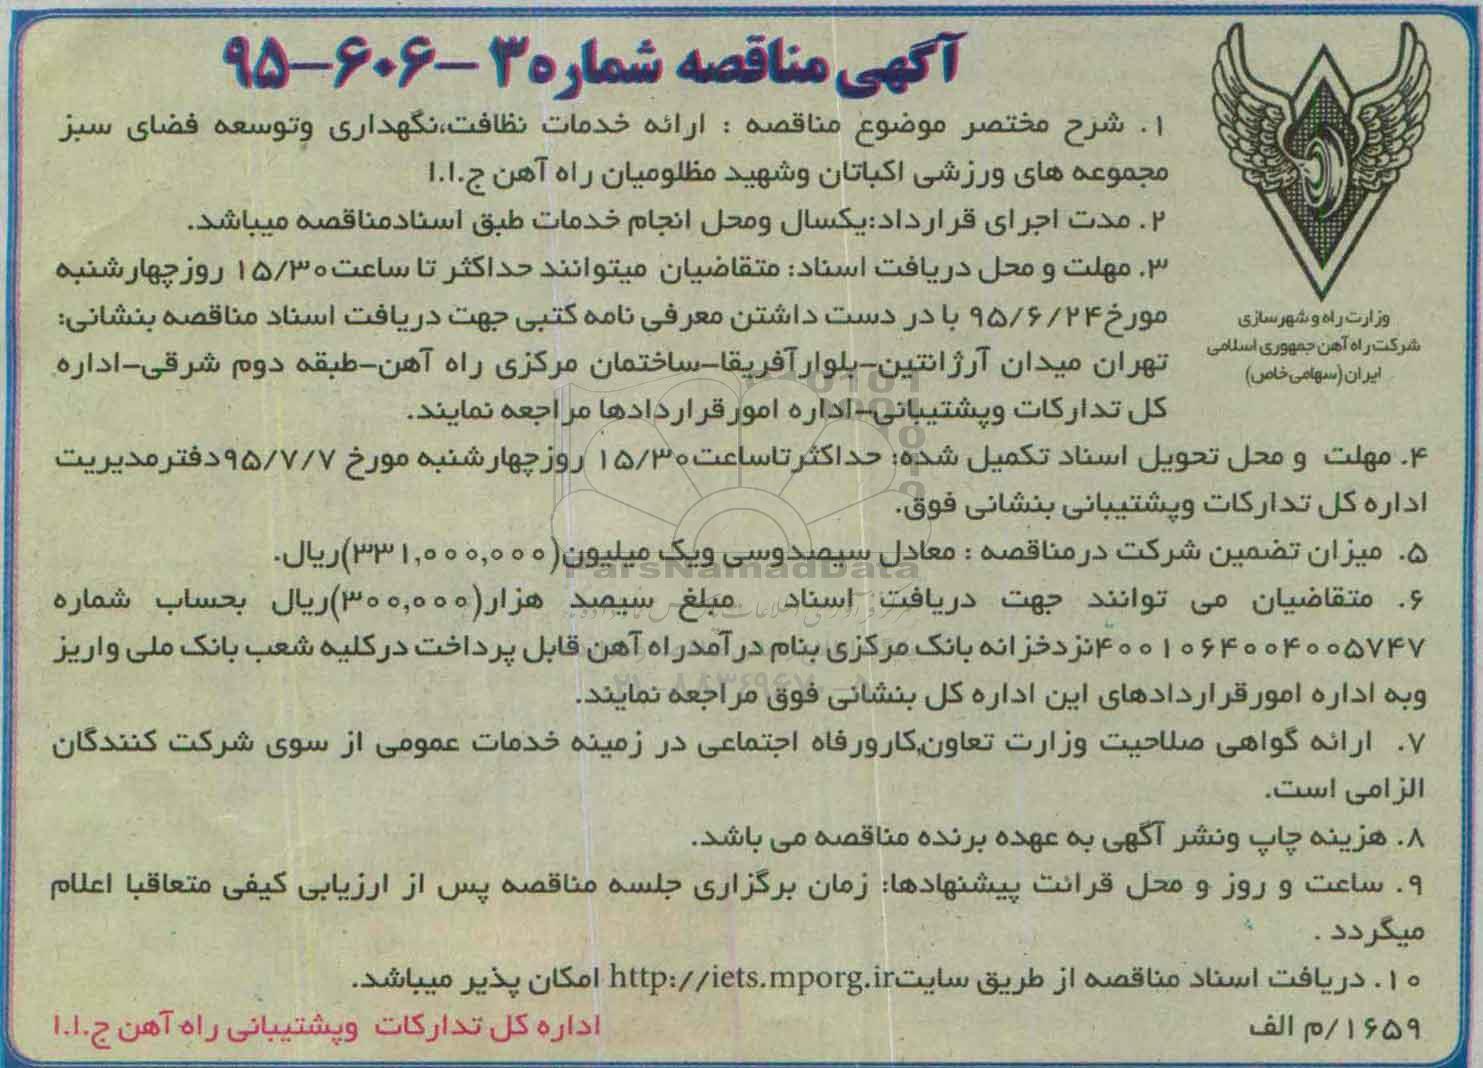 آگهی مناقصه شماره ۳ -۶۰۶-۹۵
وزارت راه و شهرسازی
شرکت راه آهن جمهوری اسلامی
ایران (سهامی خاص)
۱. شرح مختصر موضوع مناقصه : ارائه خدمات نظافت،نگهداری وتوسعه فضای سبز
مجموعه های ورزشی اکباتان وشهید مظلومیان راه آهن ج.ا.ا
۲. مدت اجرای قرارداد:یکسال ومحل انجام خدمات طبق اسنادمناقصه میباشد.
۳. مهلت و محل دریافت اسناد: متقاضیان میتوانند حداکثر تا ساعت۱۵/۳۰ روزچهارشنبه
مورخ۹۵/۶/۲۴ با در دست داشتن معرفی نامه کتبی جهت دریافت اسناد مناقصه بنشانی:
تهران میدان آرژانتین-بلوارآفریقا-ساختمان مرکزی راه آهن-طبقه دوم شرقی-اداره
کل تدارکات وپشتیبانی-اداره امورقراردادها مراجعه نمایند.
۴. مهلت و محل تحویل اسناد تکمیل شده: حداکثرتاساعت۱۵/۳۰ روزچهارشنبه مورخ ۹۵/۷/۷دفترمدیریت
اداره کل تدارکات وپشتیبانی بنشانی فوق.
۵. میزان تضمین شرکت درمناقصه : معادل سیصدوسی ویک میلیون(۳۳۱,۰۰۰,۰۰۰)ریال.
۶. متقاضیان می توانند جهت دریافت اسناد مبلغ سیصد هزار(۳۰۰,۰۰۰)ریال بحساب شماره
۴۰۰۱۰۶۴۰۰۴۰۰۵۷۴۷نزدخزانه بانک مرکزی بنام درآمدراه آهن قابل پرداخت درکلیه شعب بانک ملی واریز
وبه اداره امورقراردادهای این اداره کل بنشانی فوق مراجعه نمایند.
۷. ارائه گواهی صلاحیت وزارت تعاون,کارورفاه اجتماعی در زمینه خدمات عمومی از سوی شرکت کنندگان
الزامی است.
۸. هزینه چاپ ونشر آگهی به عهده برنده مناقصه می باشد.
۹. ساعت و روز و محل قرائت پیشنهادها: زمان برگزاری جلسه مناقصه پس از ارزیابی کیفی متعاقبا اعلام
میگردد .
۱۰. دریافت اسناد مناقصه از طریق سایتhttp://iets.mporg.ir امکان پذیر میباشد.
۱۶۵۹/م الف
اداره کل تدارکات وپشتیبانی راه آهن ج.ا.ا
ParsNamadData